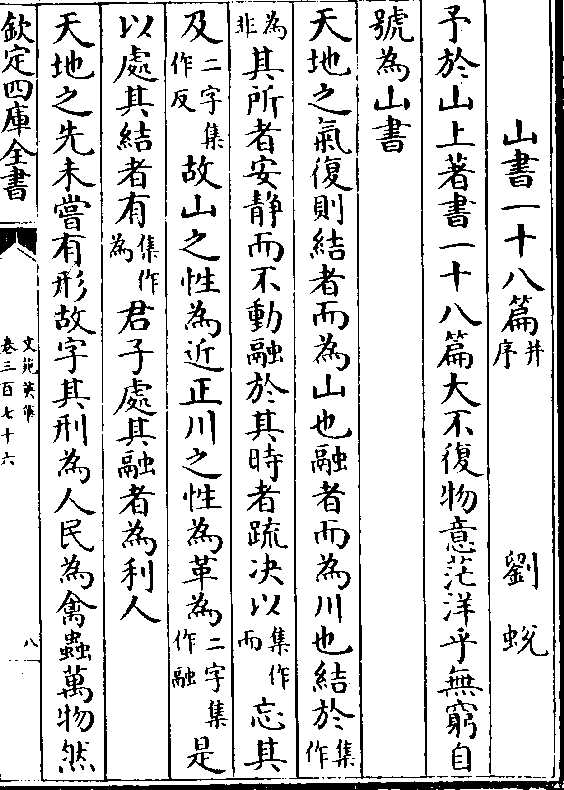 山書一十八篇并序　劉蛻
予於山上著書一十八篇大不復物意茫洋乎無窮自
號為山書
天地之氣復則結者而為山也融者而為川也結於集作
為非其所者安静而不動融於其時者疏决以集作而忘其
及二字集作反故山之性為近正川之性為革為二字集作融是
以處其結者有集作為君子處其融者為利人
天地之先未嘗有形故字其刑為人民為禽蟲萬物然
欽定四庫全書
文苑英華
卷三百七十六
八